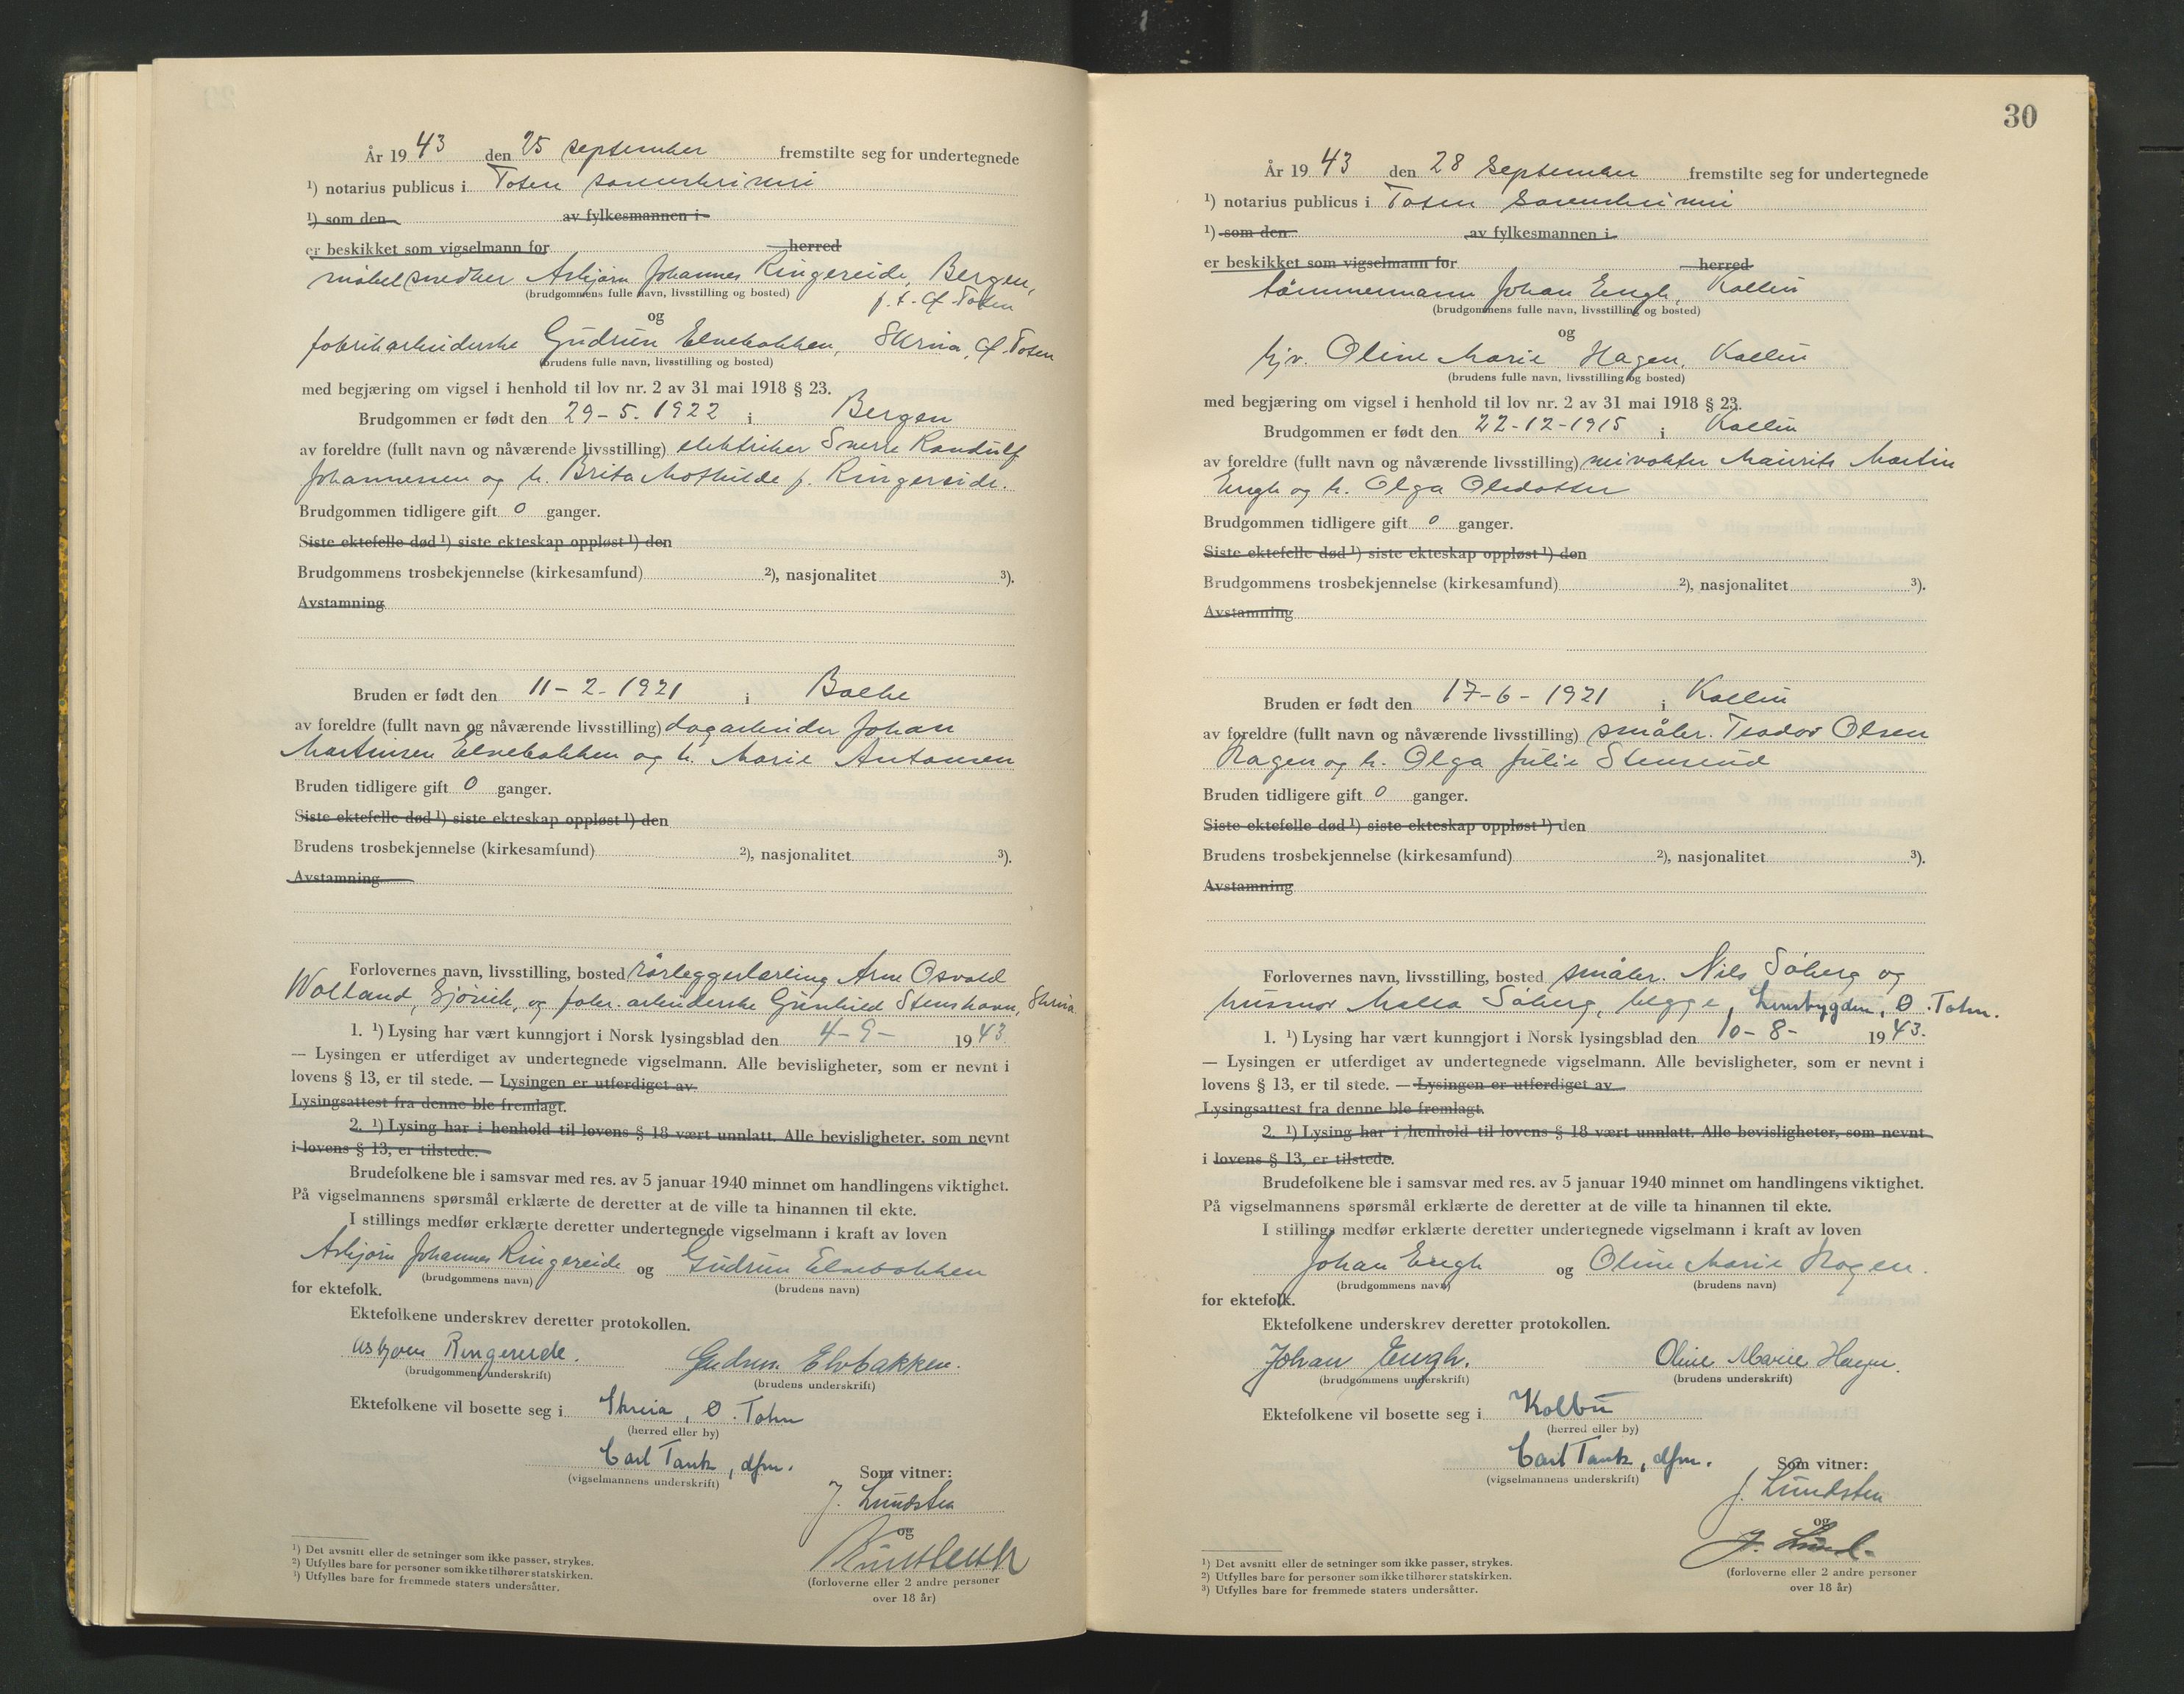 År 1943 den 25 september fremstilte seg for undertegnede
¹) notarius publicus i Toten sorenskriveri
¹) som den av fylkesmannen i
er beskikket som vigselmann for herred
møbelsnedker Asbjørn Johannes Ringereide, Bergen,
(brudgommens fulle navn, livsstilling og bosted) p.t. Ø. Toten
og
fabrikarbeiderske Gudrun Elvebakken, Skreia, Ø. Toten
(brudens fulle navn, livsstilling og bosted)
med begjæring om vigsel i henhold til lov nr. 2 av 31 mai 1918 § 23.
Brudgommen er født den 29-5-1922 i Bergen
av foreldre (fullt navn og nåværende livsstilling) elektriker Sverre Randulf
Johannessen og h. Brita Mathilde f. Ringereide.
Brudgommen tidligere gift 0 ganger.
Siste ektefelle død ¹) siste ekteskap oppløst ¹) den
Brudgommens trosbekjennelse (kirkesamfund) ²), nasjonalitet ³).
Avstamning
Bruden er født den 11-2-1921 i Balke
av foreldre (fullt navn og nåværende livsstilling) dagarbeider Johan
Martinsen Elvebakken og h. Marie Antonsen
Bruden tidligere gift 0 ganger.
Siste ektefelle død ¹) siste ekteskap oppløst ¹) den
Brudens trosbekjennelse (kirkesamfund) ²), nasjonalitet ³).
Avstamning
Forlovernes navn, livsstilling, bosted rørleggerlærling Arne Osvald
Wolland, Gjøvik, og fabr. arbeiderske Gunhild Stenshavn, Skreia
1. ¹) Lysing har vært kunngjort i Norsk lysingsblad den 4-9- 1943.
— Lysingen er utferdiget av undertegnede vigselmann. Alle bevisligheter, som er nevnt i
lovens § 13, er til stede. — Lysingen er utferdiget av
Lysingsattest fra denne ble fremlagt.
2. ¹) Lysing har i henhold til lovens § 18 vært unnlatt. Alle bevisligheter, som nevnt
i lovens § 13, er tilstede.
Brudefolkene ble i samsvar med res. av 5 januar 1940 minnet om handlingens viktighet.
På vigselmannens spørsmål erklærte de deretter at de ville ta hinannen til ekte.
I stillings medfør erklærte deretter undertegnede vigselmann i kraft av loven
Asbjørn Johannes Ringereide og Gudrun Elvebakken
(brudgommens navn) (brudens navn)
for ektefolk.
Ektefolkene underskrev deretter protokollen.
Asbjørn Ringereide. Gudrun Elvbakken.
(brudgommens underskrift) (brudens underskrift)
Ektefolkene vil bosette seg i Skreia, Ø. Toten
(herred eller by)
Carl Tank, dfm.
(vigselmannens underskrift) Som vitner:
J. Lundsten
og
(forloverne eller 2 andre personer
over 18 år)
¹) Det avsnitt eller de setninger som ikke passer, strykes.
²) Utfylles bare for personer som ikke tilhører statskirken.
³) Utfylles bare for fremmede staters undersåtter.
30
År 1943 den 28 September fremstilte seg for undertegnede
¹) notarius publicus i Toten Sorenskriveri
¹) som den av fylkesmannen i
er beskikket som vigselmann for herred
tømmermann Johan Engh, Kolbu
(brudgommens fulle navn, livsstilling og bosted)
og
hjv. Oline Marie Hagen, Kolbu
(brudens fulle navn, livsstilling og bosted)
med begjæring om vigsel i henhold til lov nr. 2 av 31 mai 1918 § 23.
Brudgommen er født den 22-12-1915 i Kolbu
av foreldre (fullt navn og nåværende livsstilling) veivokter Maurits Martin
Engh og h. Olga Olsdatter
Brudgommen tidligere gift 0 ganger.
Siste ektefelle død ¹) siste ekteskap oppløst ¹) den
Brudgommens trosbekjennelse (kirkesamfund) ²), nasjonalitet ³).
Avstamning
Bruden er født den 17-6-1921 i Kolbu
av foreldre (fullt navn og nåværende livsstilling) småbr. Teodor Olsen
Hagen og h. Olga Julie Stensrud
Bruden tidligere gift 0 ganger.
Siste ektefelle død ¹) siste ekteskap oppløst ¹) den
Brudens trosbekjennelse (kirkesamfund) ²), nasjonalitet ³).
Avstamning
Forlovernes navn, livsstilling, bosted småbr. Nils Søberg og
husmor Søberg, begge, Lensbygden, Ø. Toten.
1. ¹) Lysing har vært kunngjort i Norsk lysingsblad den 10-8- 1943.
— Lysingen er utferdiget av undertegnede vigselmann. Alle bevisligheter, som er nevnt i
lovens § 13, er til stede. — Lysingen er utferdiget av
Lysingsattest fra denne ble fremlagt.
2. ¹) Lysing har i henhold til lovens § 18 vært unnlatt. Alle bevisligheter, som nevnt
i lovens § 13, er tilstede.
Brudefolkene ble i samsvar med res. av 5 januar 1940 minnet om handlingens viktighet.
På vigselmannens spørsmål erklærte de deretter at de ville ta hinannen til ekte.
I stillings medfør erklærte deretter undertegnede vigselmann i kraft av loven
Johan Engh og Oline Marie Hagen.
(brudgommens navn) (brudens navn)
for ektefolk.
Ektefolkene underskrev deretter protokollen.
Johan Engh. Oline Marie Hagen.
(brudgommens underskrift) (brudens underskrift)
Ektefolkene vil bosette seg i Kolbu
(herred eller by)
Carl Tank, dfm.
(vigselmannens underskrift) Som vitner:
J. Lundsten
og
J. Lund
(forloverne eller 2 andre personer
over 18 år)
¹) Det avsnitt eller de setninger som ikke passer, strykes.
²) Utfylles bare for personer som ikke tilhører statskirken.
³) Utfylles bare for fremmede staters undersåtter.